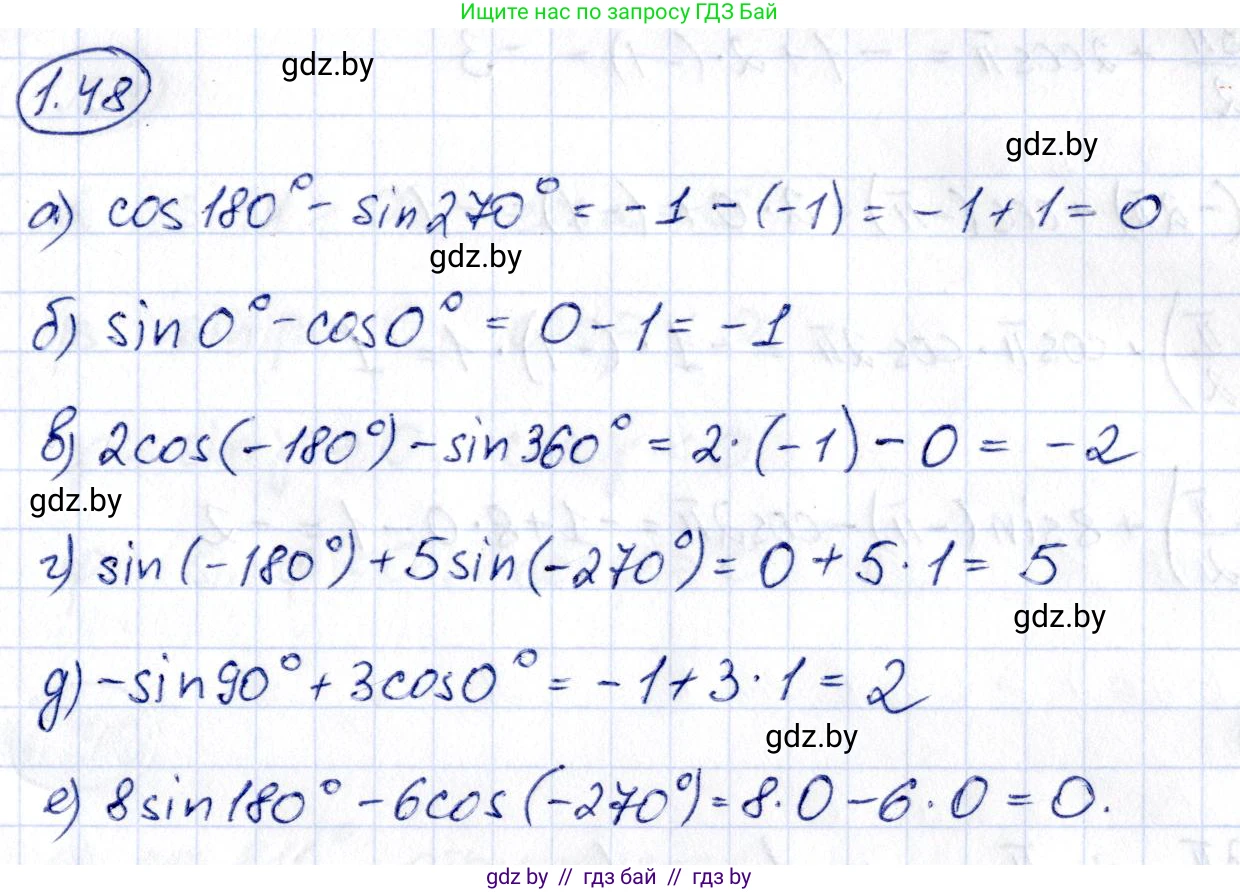 Ищите нас по запросу ГДЗ Бай
1.48
gdz.by
gdz.by
а) cos180° - sin270° = -1 - (-1) = -1+1 = 0
gdz.by
б) sin0° - cos0° = 0 - 1 = -1
в) 2cos(-180°) - sin360° = 2·(-1) - 0 = -2
gdz.by
г) sin(-180°) + 5sin(-270°) = 0 + 5·1 = 5
gdz.by
д) -sin90° + 3cos0° = -1+3·1 = 2
gdz.by
е) 8sin180° - 6cos(-270°) = 8·0 - 6·0 = 0.
gdz.by // гдз бай // gdz.by